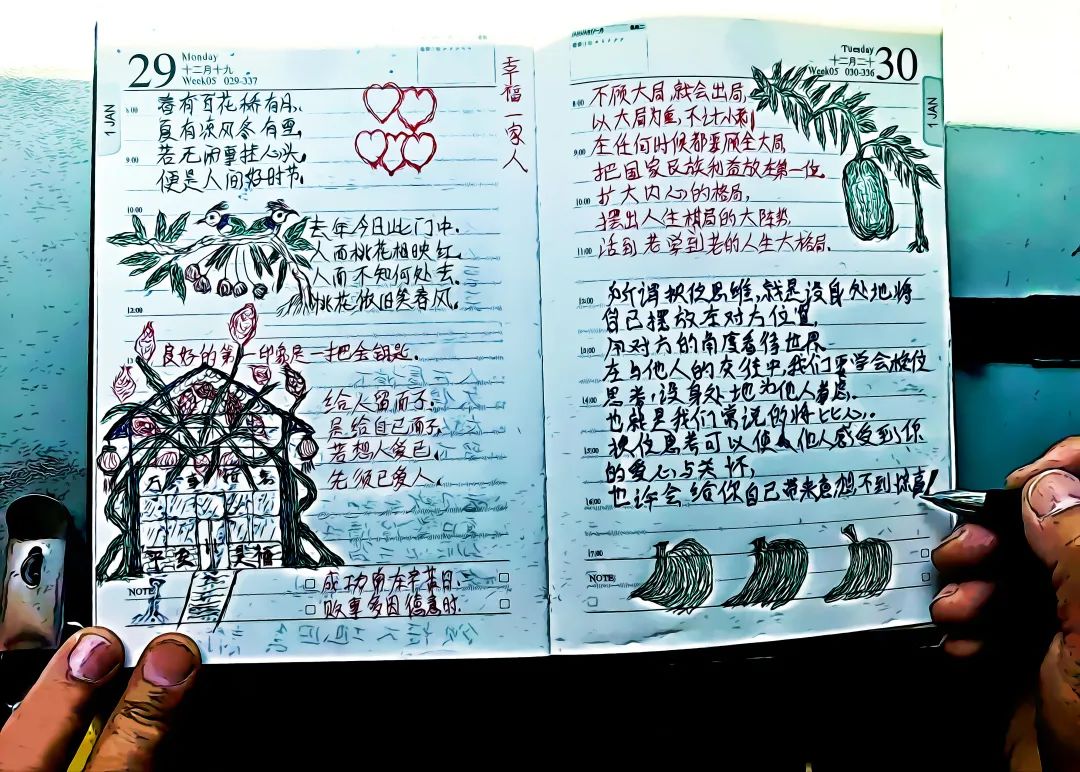 29
Monday
十二月十九
Week05 029-337
1 JAN
8:00
春有百花秋有月、
夏有凉风冬有雪,
9:00
若无闲事挂心头,
便是人间好时节.
幸福一家人
10:00
去年今日此门中.
人面桃花相映红
人面不知何处去.
12:00
桃花依旧笑春风.
良好的第一印象是一把金钥匙.
给人留面子.
是给自己面子,
若想人爱己,
先须己爱人.
平安
NOTE
成功常在辛苦日.
败事多因得意时.
Tuesday
十二月二十
Week05 030-336
30
1 JAN
8:00
不顾大局,就会出局,
以大局为重,不计小利
9:00
在任何时候都要顾全大局,
把国家民族利益放在第一位.
10:00
扩大内心的格局,
摆出人生棋局的大阵势,
11:00
活到老学到老的人生大格局.
12:00
所谓换位思维,就是设身处地,将
自己摆放在对方位置,
用对方的角度看待世界
在与他人的交往中,我们要学会换位
14:00
思考,设身处地为他人着想.
也就是我们常说的将心比心.
15:00
换位思考可以使他人感受到你
的爱心与关怀,
16:00
也许会给你自己带来意想不到惊喜!
17:00
NOTE